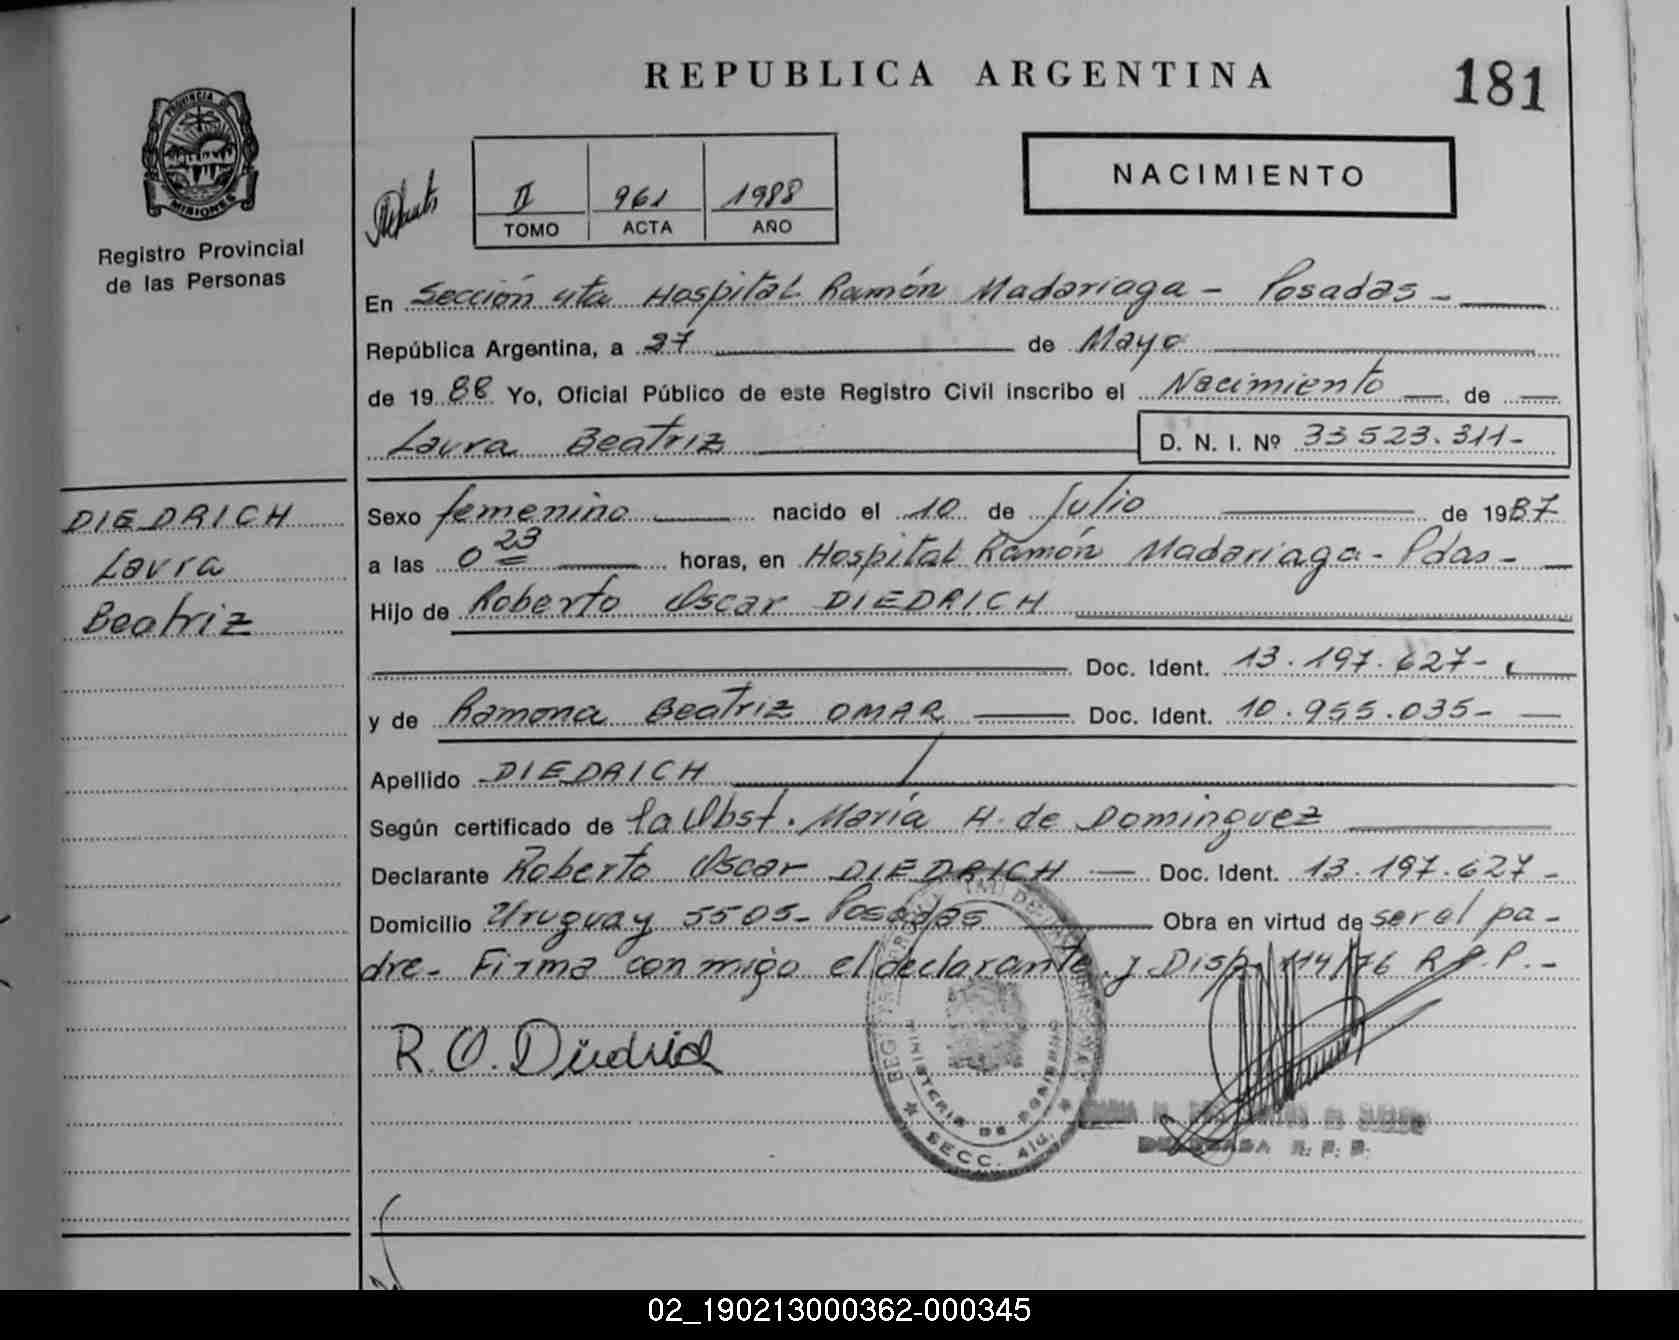 REPUBLICA ARGENTINA
181
PROVINCIA DE
MISIONES
Registro Provincial
de las Personas
II 961 1988
TOMO ACTA AÑO
NACIMIENTO
En Sección 4ta Hospital Ramón Madariaga - Posadas -
República Argentina, a 27 de Mayo
de 1988 Yo, Oficial Público de este Registro Civil inscribo el Nacimiento de
Laura Beatriz D. N. I. Nº 33 523.311-
DIEDRICH
Laura
Beatriz
Sexo femenino nacido el 10 de Julio de 1987
a las 0 23 horas, en Hospital Ramón Madariaga - Pdas -
Hijo de Roberto Oscar DIEDRICH
Doc. Ident. 13.197.627-
y de Ramona Beatriz OMAR Doc. Ident. 10.955.035-
Apellido DIEDRICH
Según certificado de la Obst. María H. de Dominguez
Declarante Roberto Oscar DIEDRICH Doc. Ident. 13.197.627-
Domicilio Uruguay 5505- Posadas Obra en virtud de ser el pa-
dre- Firma conmigo el declarante y Disp. 114/76 R.P.P.-
R. O. Diedrich
MINISTERIO DE GOBIERNO
SECC. 4ta.
02_190213000362-000345